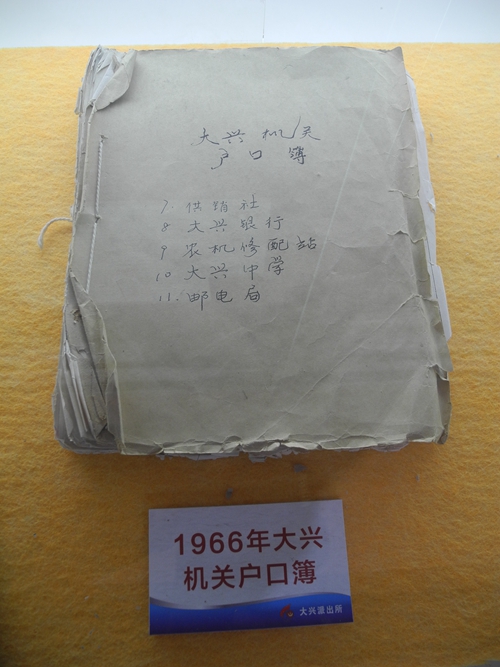 大兴机关
户口簿
7. 供销社
8 大兴银行
9 农机修配站
10 大兴中学
11. 邮电局
1966年大兴
机关户口簿
大兴派出所